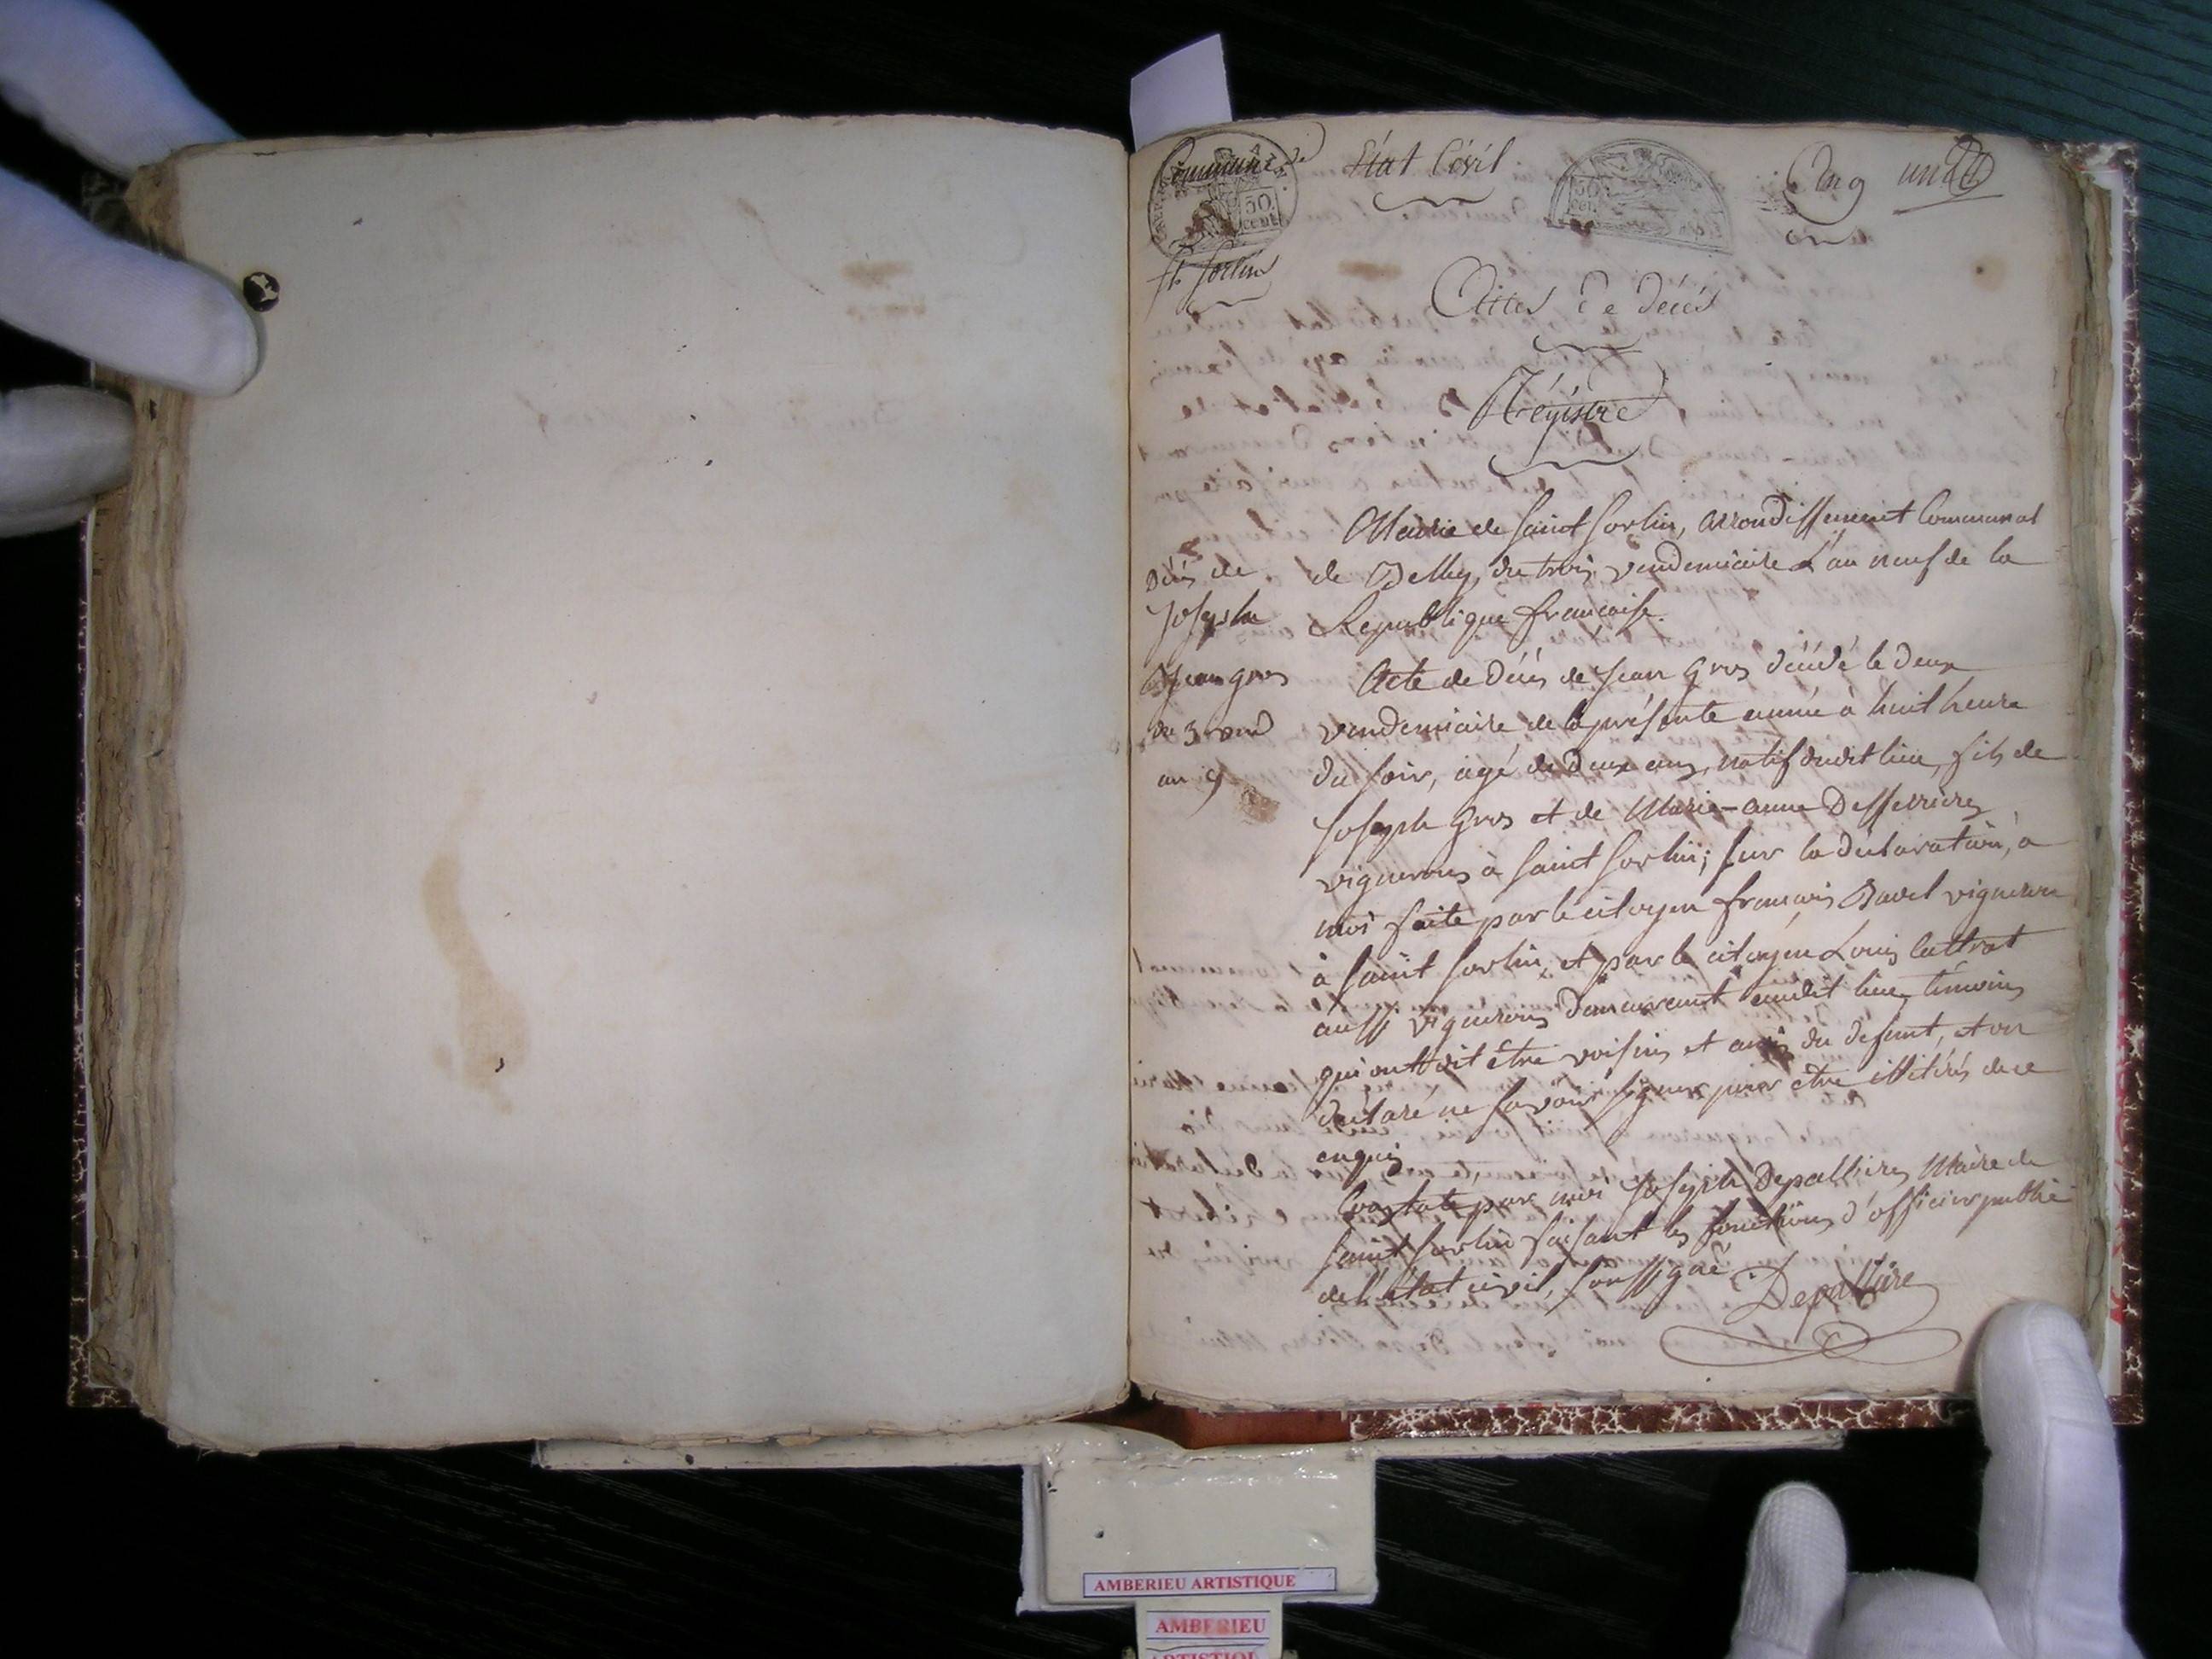 Commune de
St Sorlin
Etat Civil.
An 9
un
Actes de décès
Régistre
Décès de
Joseph
Jean gros
du 3 vend
an 9
Mairie de Saint Sorlin, arrondissement Communal
de Belley, du trois vendemiaire L'an neuf de la
Republique française.
Acte de Décès de Jean Gros décédé le deux
vendemiaire de la présente année à huit heure
du soir, agé de deux ans, natif dudit lieu, fils de
Joseph Gros et de Marie-anne Desserrieres
vignerons à Saint Sorlin; sur la déclaration, à
moi faite par le citoyen françois vigneron
à Saint Sorlin, et par le citoyen Louis
aussi vignerons demeurant audit lieu, témoins
qui ont dit être voisins et amis du defunt, et on
declaré ne savoir signer pour être illitérés de ce
enquis
Constaté par moi Joseph Depallieres Maire de
Saint Sorlin faisant les fonctions d'officier public
de l'état civil, soussigné
Depalliere
50
cent
50
cen
AMBERIEU ARTISTIQUE
AMBERIEU
ARTISTIQU